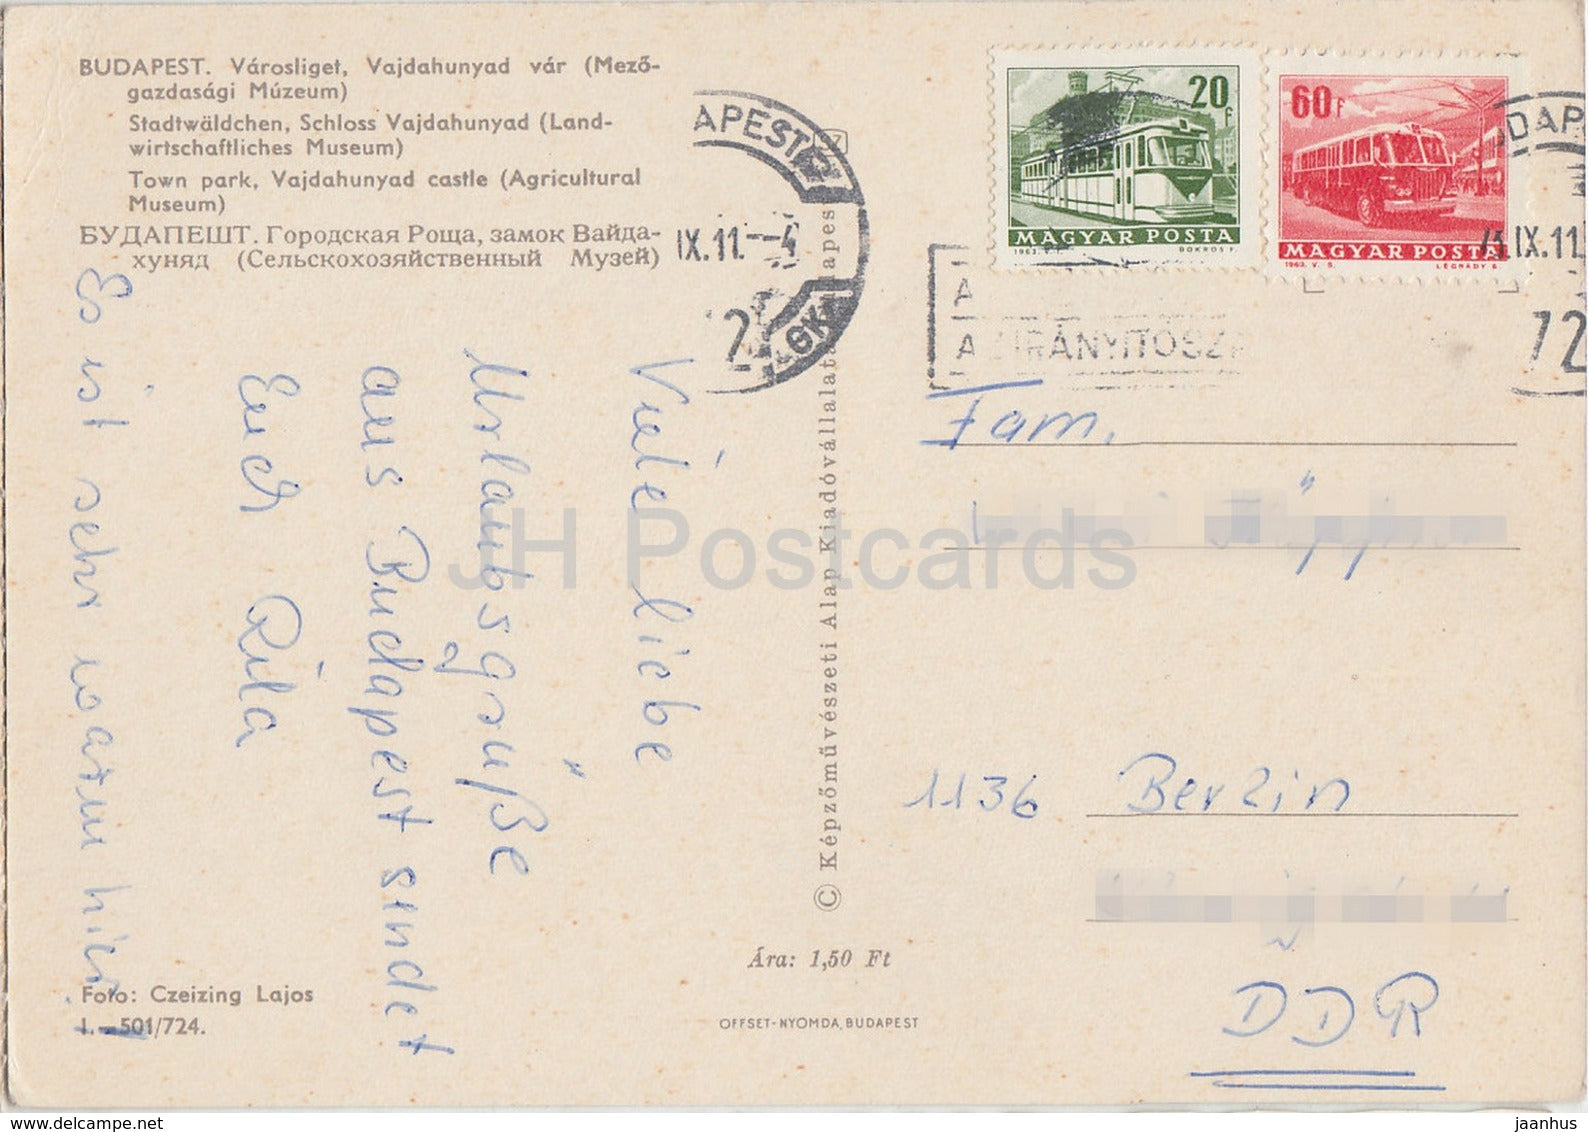 BUDAPEST. Városliget, Vajdahunyad vár (Mező-
gazdasági Múzeum)
Stadtwäldchen, Schloss Vajdahunyad (Land-
wirtschaftliches Museum)
Town park, Vajdahunyad castle (Agricultural
Museum)
БУДАПЕШТ. Городская Роща, замок Вайда-
хуняд (Сельскохозяйственный Музей)
Viele liebe
Urlaubsgrüße
aus Budapest sendet
Euch Rita
Es ist sehr warm hier!
Foto: Czeizing Lajos
I. — 501/724.
© Képzőművészeti Alap Kiadóvállalata
Ára: 1,50 Ft
OFFSET-NYOMDA, BUDAPEST
APEST
IX.11.--4
72
20f
MAGYAR POSTA
1963. V. P.
BOKROS F.
60f
MAGYAR POSTA
1963. V. S.
LÉGRÁDY S.
DAP
IX.11.
72
A
IRÁNYÍTÓSZ
Fam.
1136 Berlin
DDR
JH Postcards
www.delcampe.net
jaanhus